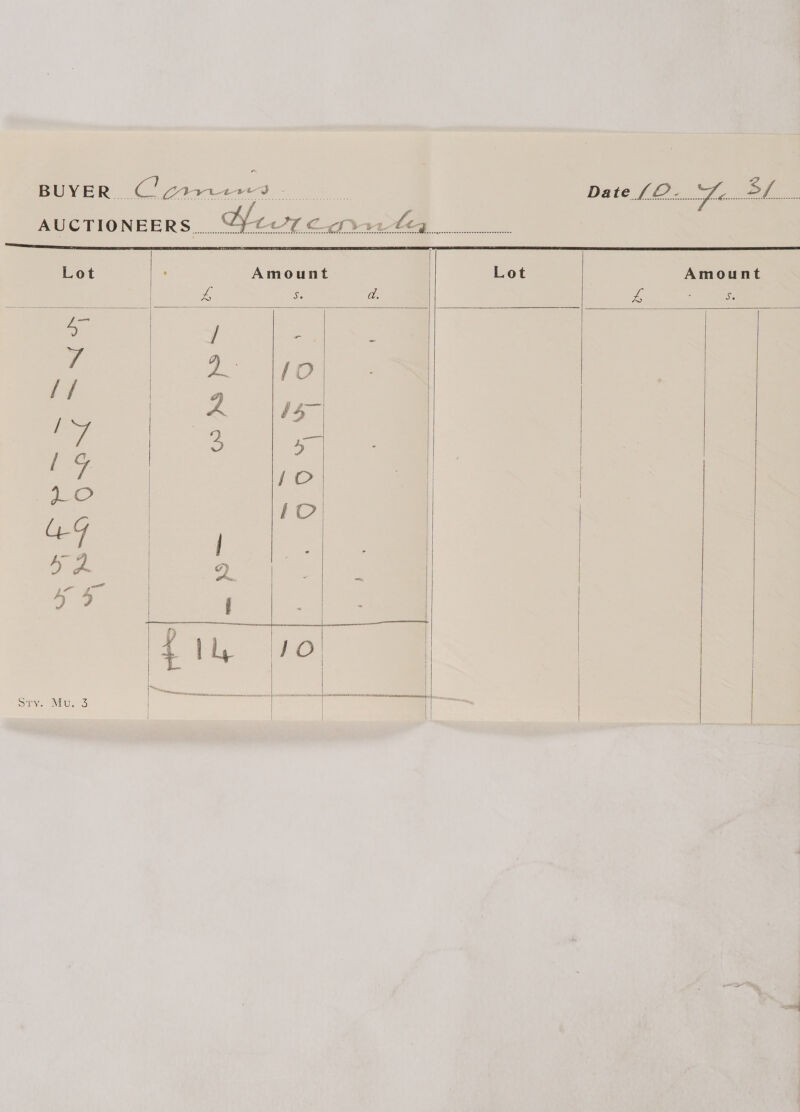 BUYER Comins Date 10. 7. 31
AUCTIONEERS Hurcomb
Lot Amount Lot Amount
£ s. d. £ s.
5 1 - -
7 2 10 -
11 2 15
17 3 5 -
19 10
20 10
49 1 - -
52 2 - -
55 1 - -
£14 10
Sty. Mu. 3